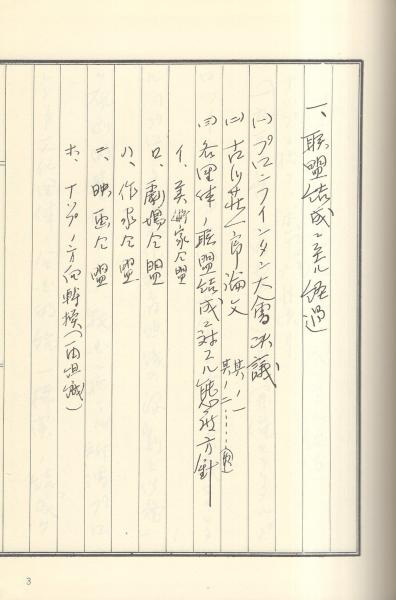 一、聯盟結成ニ至ル経過
(一) プロフィンタン大會決議
(二) 古川荘一郎論文 其ノ一
其ノ二……
(三) 各団体ノ聯盟結成ニ対スル態度方針
イ、美術家仝盟
ロ、劇場仝盟
ハ、作家仝盟
ニ、映画仝盟
ホ、ナップノ方向転換(再組織)
3